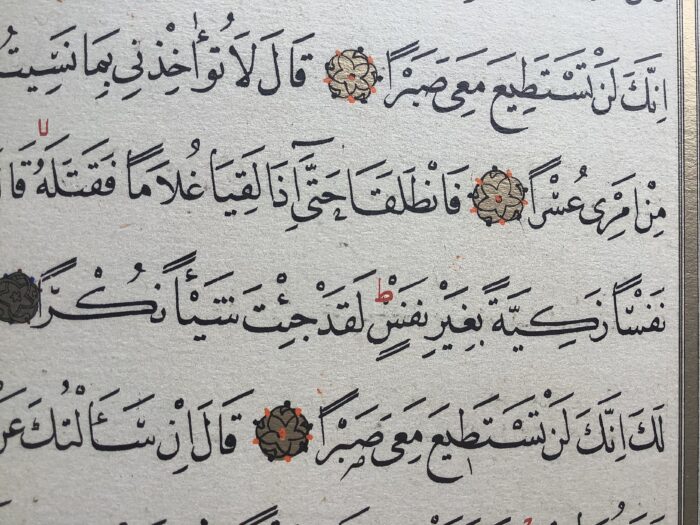 اِنَّكَ لَنْ تَسْتَطِيعَ مَعِىَ صَبْرًا قَالَ لَا تُؤٰاخِذْنِى بِمَا نَسِيتُ
مِنْ اَمْرِى عُسْرًا فَانْطَلَقَا حَتّٰٓى اِذَا لَقِيَا غُلَامًا فَقَتَلَهُ قَالَ
نَفْسًا زَكِيَّةً بِغَيْرِ نَفْسٍ ط لَقَدْ جِئْتَ شَيْـًٔا نُكْرًا
لَكَ اِنَّكَ لَنْ تَسْتَطِيعَ مَعِىَ صَبْرًا قَالَ اِنْ سَاَلْتُكَ عَنْ